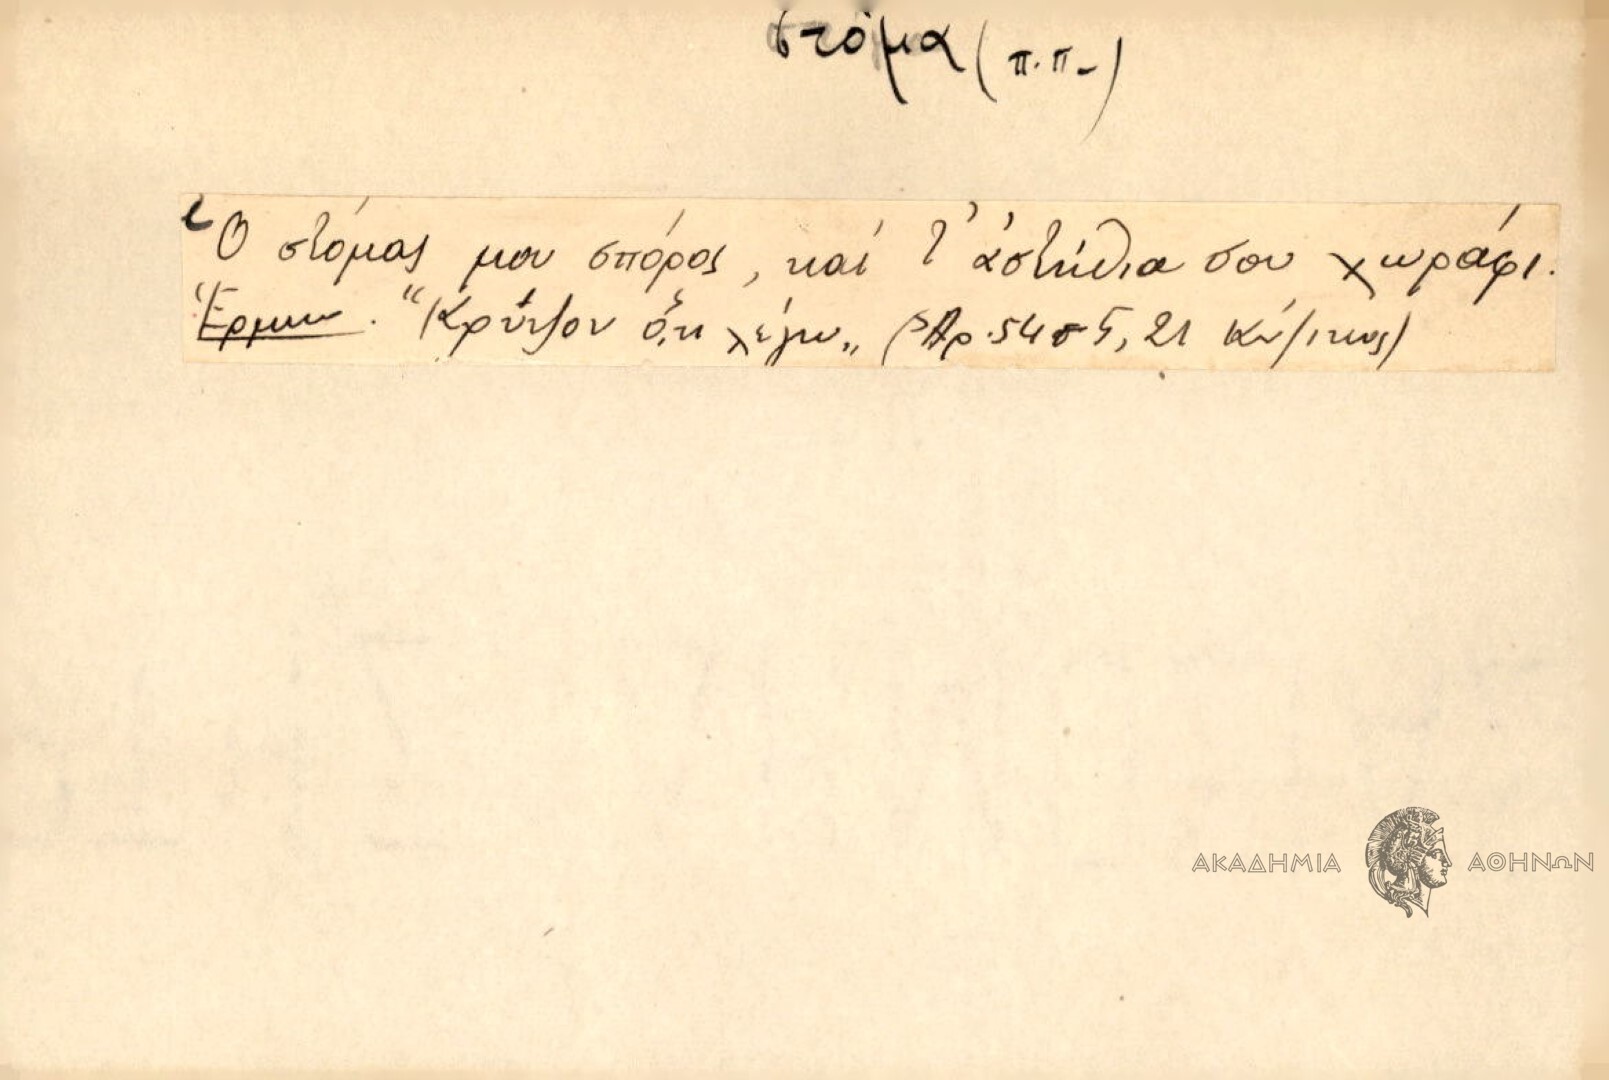 στόμα (π.π.)
Ὁ στόμας μου σπόρος, καί τ' ἀστήθια σου χωράφι.
Ἑρμην. "Κρύψον ὅ,τι λέγω„ (Ἀρ. 54 σ 5, 21
ΑΚΑΔΗΜΙΑ ΑΘΗΝΩΝ